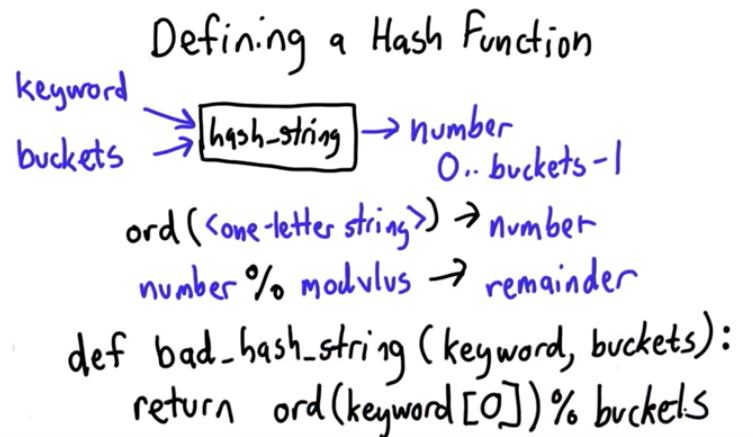 Defining a Hash Function
keyword
buckets
hash_string → number
0.. buckets-1
ord(<one-letter string>) → number
number % modulus → remainder
def bad_hash_string(keyword, buckets):
return ord(keyword[0]) % buckets